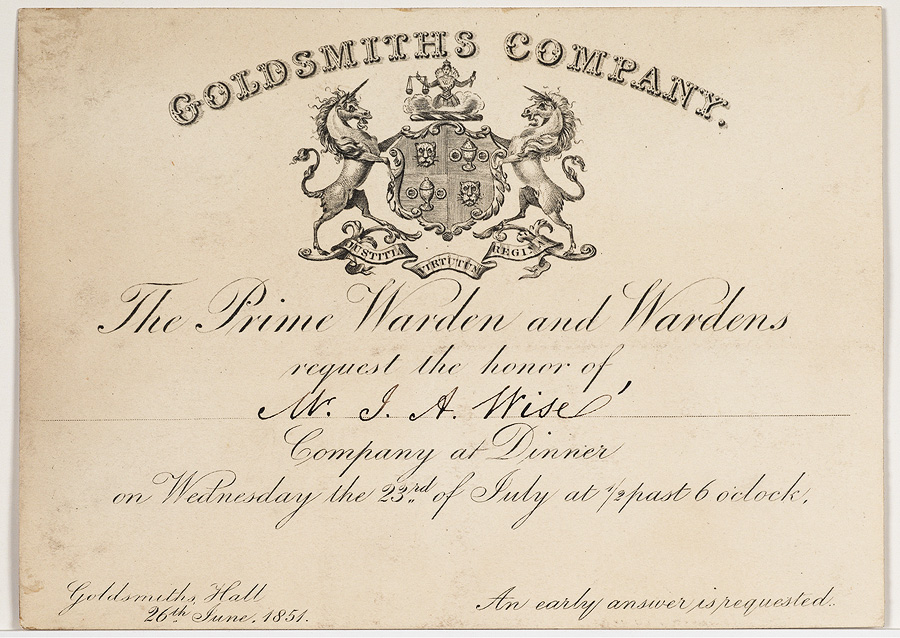 GOLDSMITHS COMPANY.
JUSTITIA VIRTUTUM REGINA
The Prime Warden and Wardens
request the honor of
Mr. J. A. Wise'
Company at Dinner
on Wednesday the 23rd of July at 1/2 past 6 oclock,
Goldsmiths Hall
26th June, 1851.
An early answer is requested.